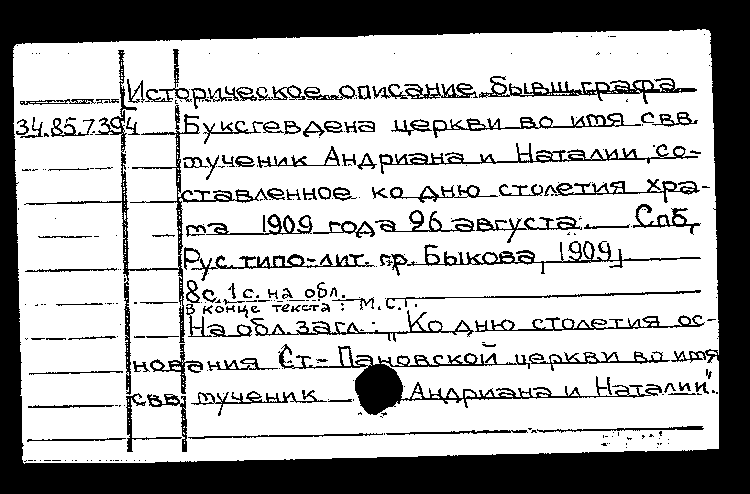 Историческое описание бывш. графа
34.85.7.394 Буксгевдена церкви во имя свв.
мученик Андриана и Наталии, со-
ставленное ко дню столетия хра-
ма 1909 года 26 августа. Спб,
Рус. типо-лит. гр. Быкова, 1909].
8с., 1 с. на обл.
В конце текста: М.С.Г.
На обл. загл.: „Ко дню столетия ос-
нования Ст.-Пановской церкви во имя
свв. мученик Андриана и Наталии".